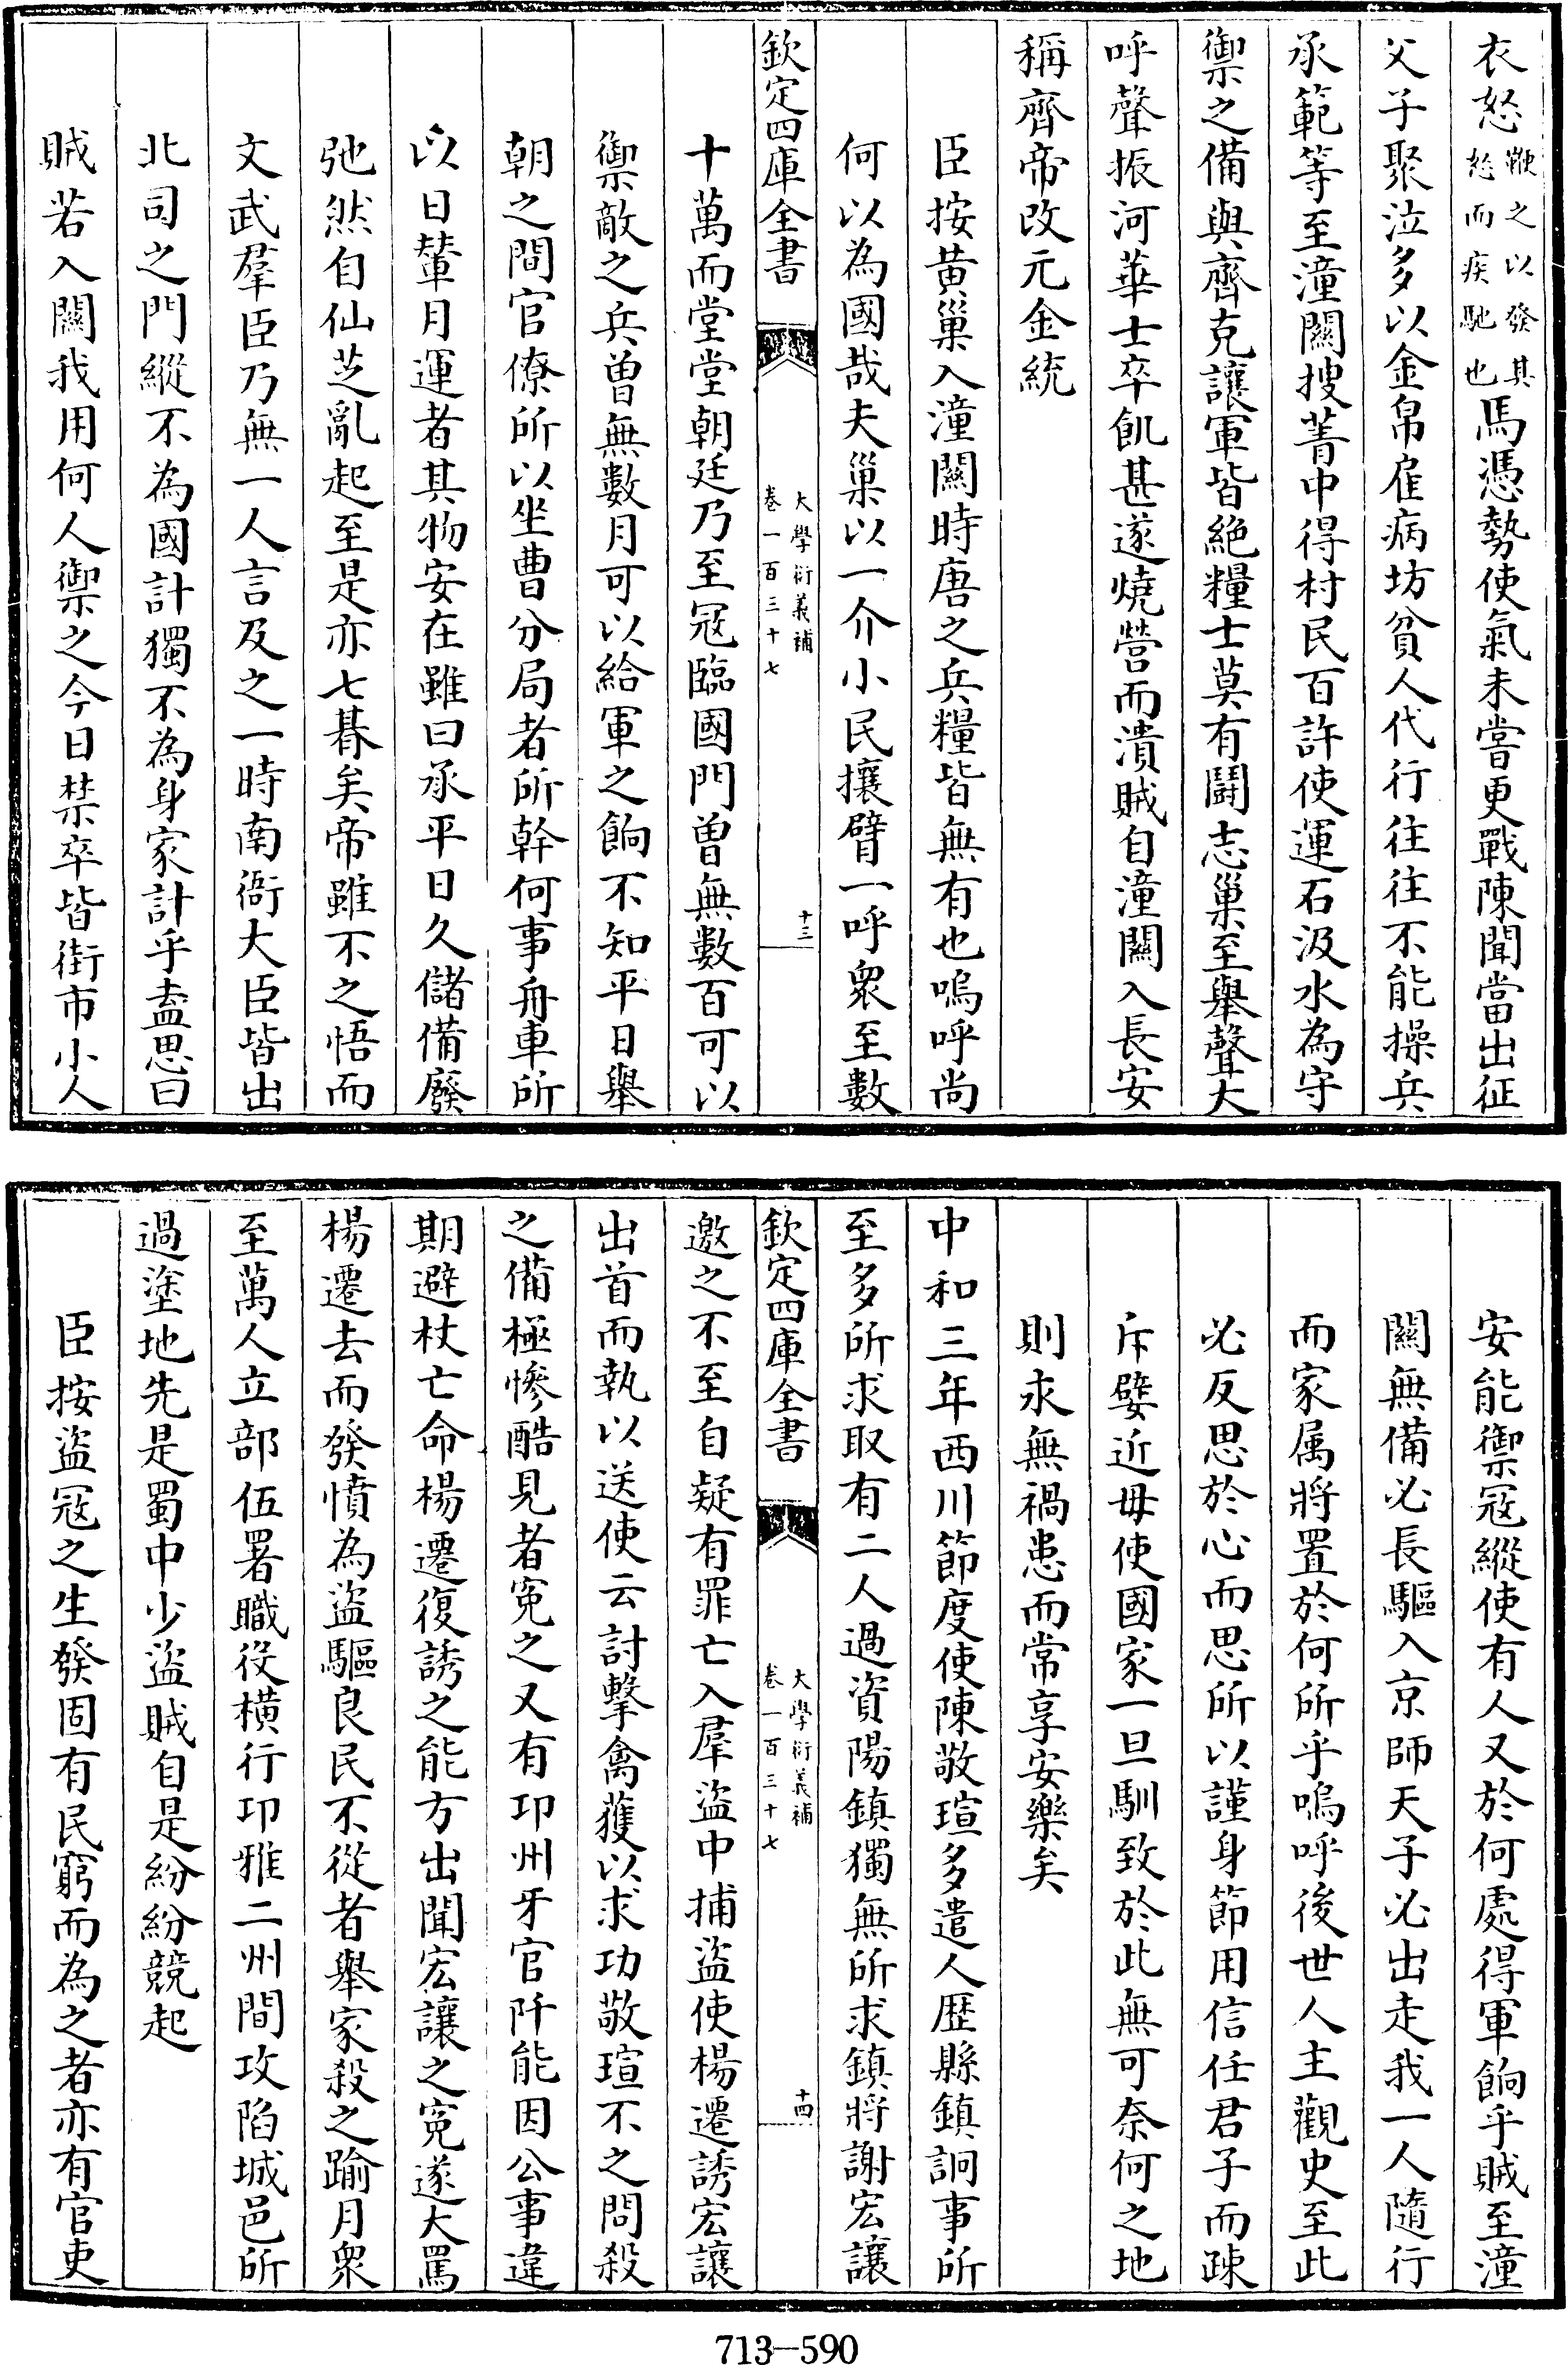 衣怒鞭之以發其怒而疾馳也馬憑勢使氣未嘗更戰陳聞當出征
父子聚泣多以金帛雇病坊貧人代行往往不能操兵
承範等至潼關搜菁中得村民百許使運石汲水為守
禦之備與齊克讓軍皆絶糧士莫有鬪志巢至舉聲大
呼聲振河華士卒飢甚遂燒營而潰賊自潼關入長安
稱齊帝改元金統
臣按黃巢入潼關時唐之兵糧皆無有也嗚呼尚
何以為國哉夫巢以一介小民攘臂一呼衆至數
欽定四庫全書
大學衍義補
卷一百三十七
十三
十萬而堂堂朝廷乃至冦臨國門曽無數百可以
禦敵之兵曽無數月可以給軍之餉不知平日舉
朝之間官僚所以坐曹分局者所幹何事舟車所
以日輦月運者其物安在雖曰承平日久儲備廢
弛然自仙芝亂起至是亦七朞矣帝雖不之悟而
文武羣臣乃無一人言及之一時南衙大臣皆出
北司之門縱不為國計獨不為身家計乎盍思曰
賊若入關我用何人禦之今日禁卒皆街市小人
安能禦冦縱使有人又於何處得軍餉乎賊至潼
關無備必長驅入京師天子必出走我一人隨行
而家属將置於何所乎嗚呼後世人主觀史至此
必反思於心而思所以謹身節用信任君子而疎
斥嬖近毋使國家一旦馴致於此無可奈何之地
則永無禍患而常享安樂矣
中和三年西川節度使陳敬瑄多遣人歷縣鎮詗事所
至多所求取有二人過資陽鎮獨無所求鎮將謝宏讓
欽定四庫全書
大學衍義補
卷一百三十七
十四
邀之不至自疑有罪亡入羣盜中捕盜使楊遷誘宏讓
出首而執以送使云討擊禽獲以求功敬瑄不之問殺
之備極慘酷見者寃之又有卭州牙官阡能因公事違
期避杖亡命楊遷復誘之能方出聞宏讓之寃遂大罵
楊遷去而發憤為盜驅良民不從者舉家殺之踰月衆
至萬人立部伍署職役横行卭雅二州間攻陷城邑所
過塗地先是蜀中少盜賊自是紛紛競起
臣按盜冦之生發固有民窮而為之者亦有官吏
713—590